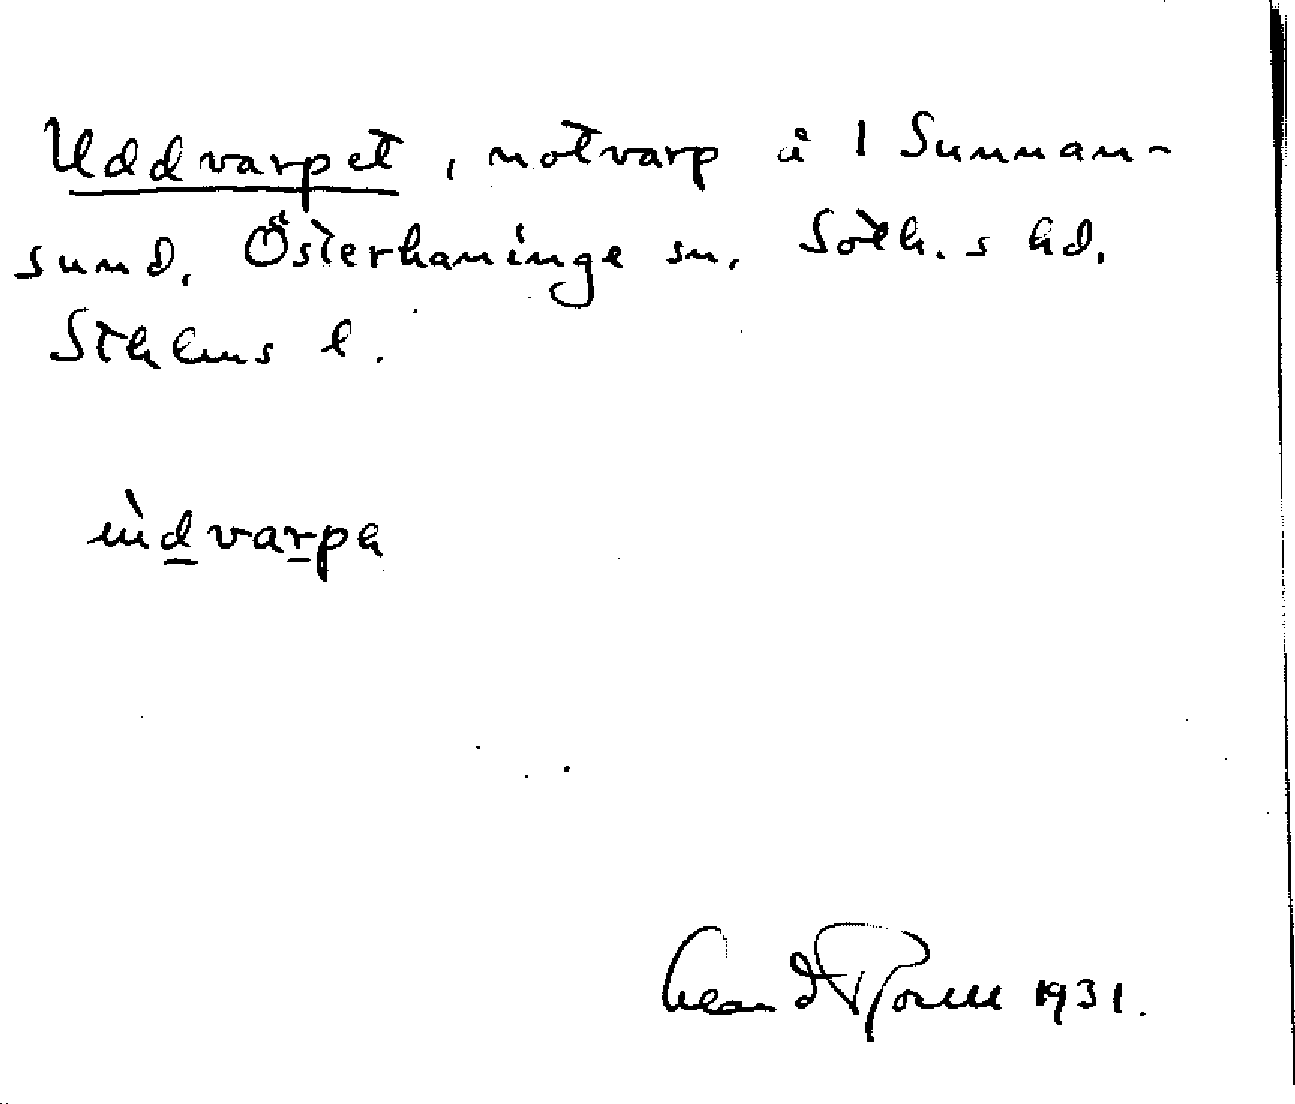 Uddvarpet, notvarp å 1 Sunnan-
sund. Österhaninge sn. Soth.s hd.
Sthlms l.
ùdvarpa
1931.